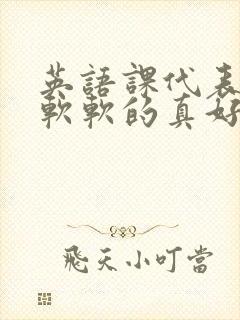 英語課代表
軟軟的真好
飛天小叮當